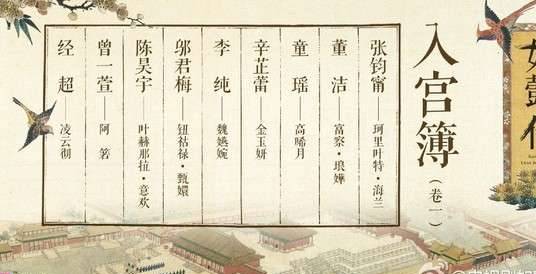 入宫簿
(卷一)
张钧甯——珂里叶特·海兰
董洁——富察·琅嬅
童瑶——高晞月
辛芷蕾——金玉妍
李纯——魏嬿婉
邬君梅——钮祜禄·甄嬛
陈昊宇——叶赫那拉·意欢
曾一萱——阿箬
经超——凌云彻